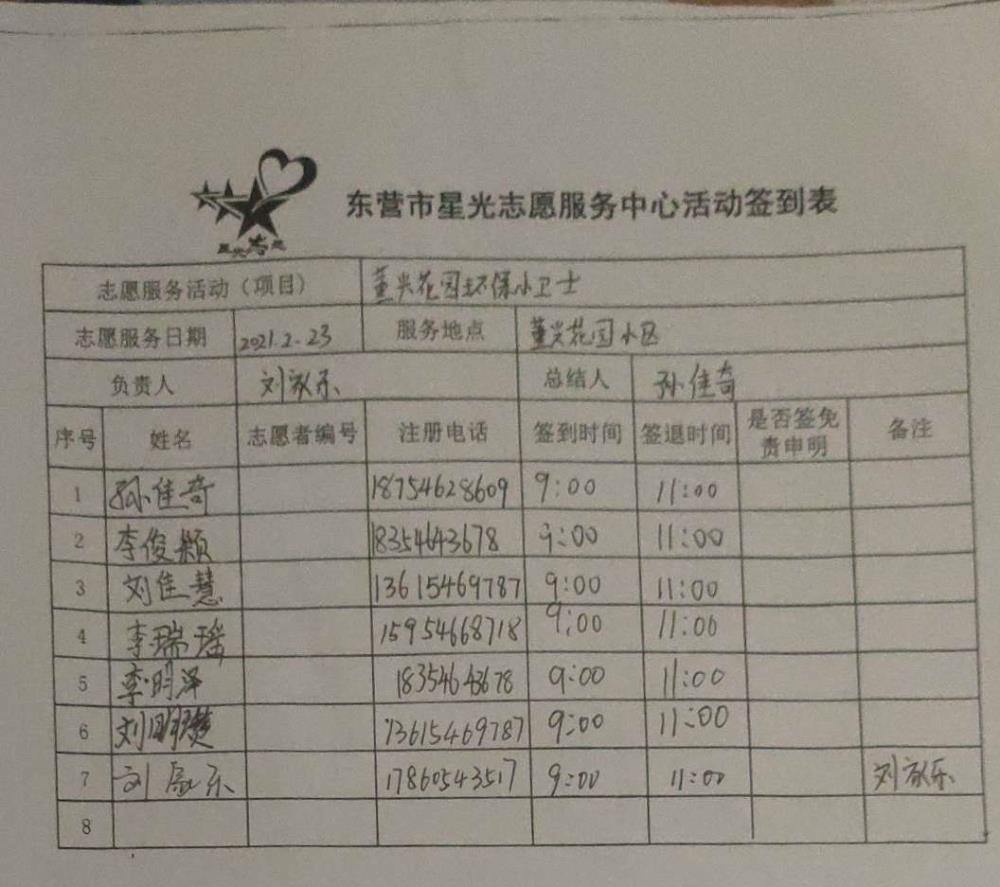 星光志愿
东营市星光志愿服务中心活动签到表
志愿服务活动（项目） 董兴花园环保小卫士
志愿服务日期 2021.2.23 服务地点 董兴花园小区
负责人 刘家乐 总结人 孙佳奇
序号 姓名 志愿者编号 注册电话 签到时间 签退时间 是否签免责申明 备注
1 孙佳奇 18754628609 9:00 11:00
2 李俊颖 18354643678 9:00 11:00
3 刘佳慧 13615469787 9:00 11:00
4 李瑞瑶 15954668718 9:00 11:00
5 李明泽 18354643678 9:00 11:00
6 刘明 13615469787 9:00 11:00
7 刘家乐 17860543517 9:00 11:00 刘家乐
8